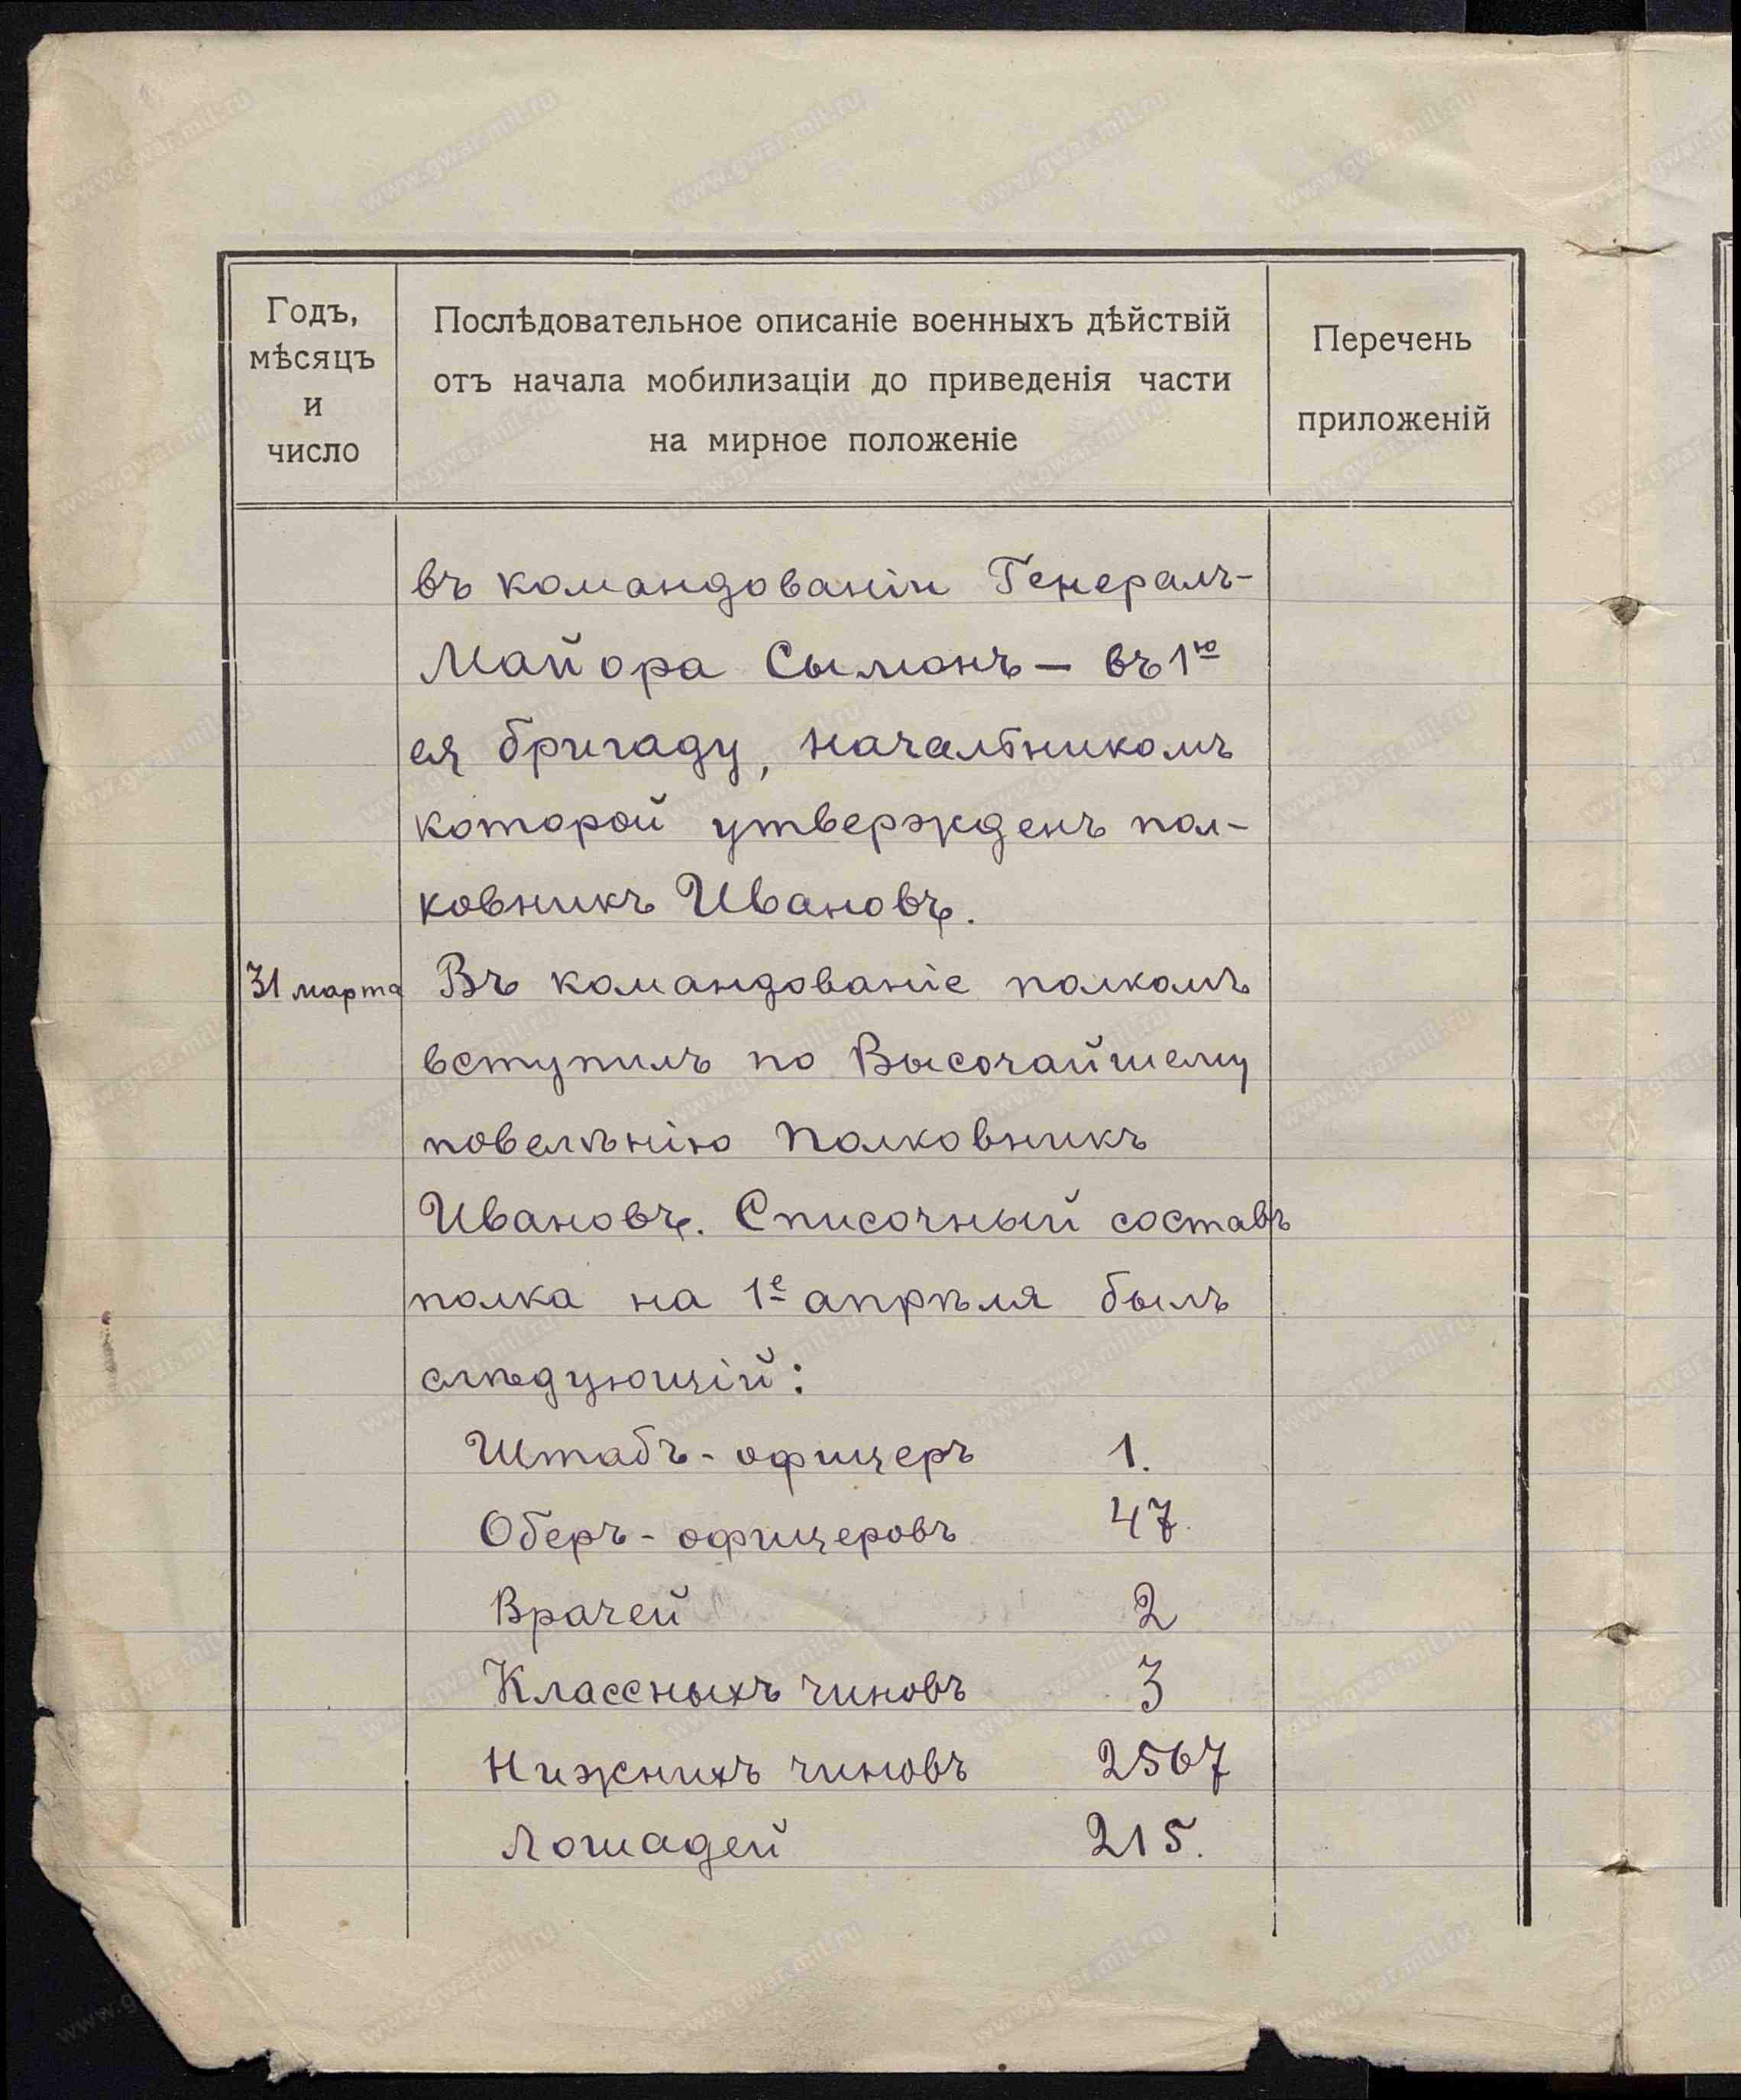 Годъ,
мѣсяцъ
и
число
Послѣдовательное описаніе военныхъ дѣйствій
отъ начала мобилизаціи до приведенія части
на мирное положеніе
Перечень
приложеній
въ командованіи Генералъ-
Майора Сымонъ — въ 1ю
ея бригаду, начальникомъ
которой утвержденъ пол-
ковникъ Ивановъ.
31 марта Въ командованіе полкомъ
вступилъ по Высочайшему
повелѣнію Полковникъ
Ивановъ. Списочный составъ
полка на 1е апрѣля былъ
слѣдующій:
Штабъ-офицеръ 1.
Оберъ-офицеровъ 47.
Врачей 2
Классныхъ чиновъ 3
Нижнихъ чиновъ 2567
Лошадей 215.
www.gwar.mil.ru